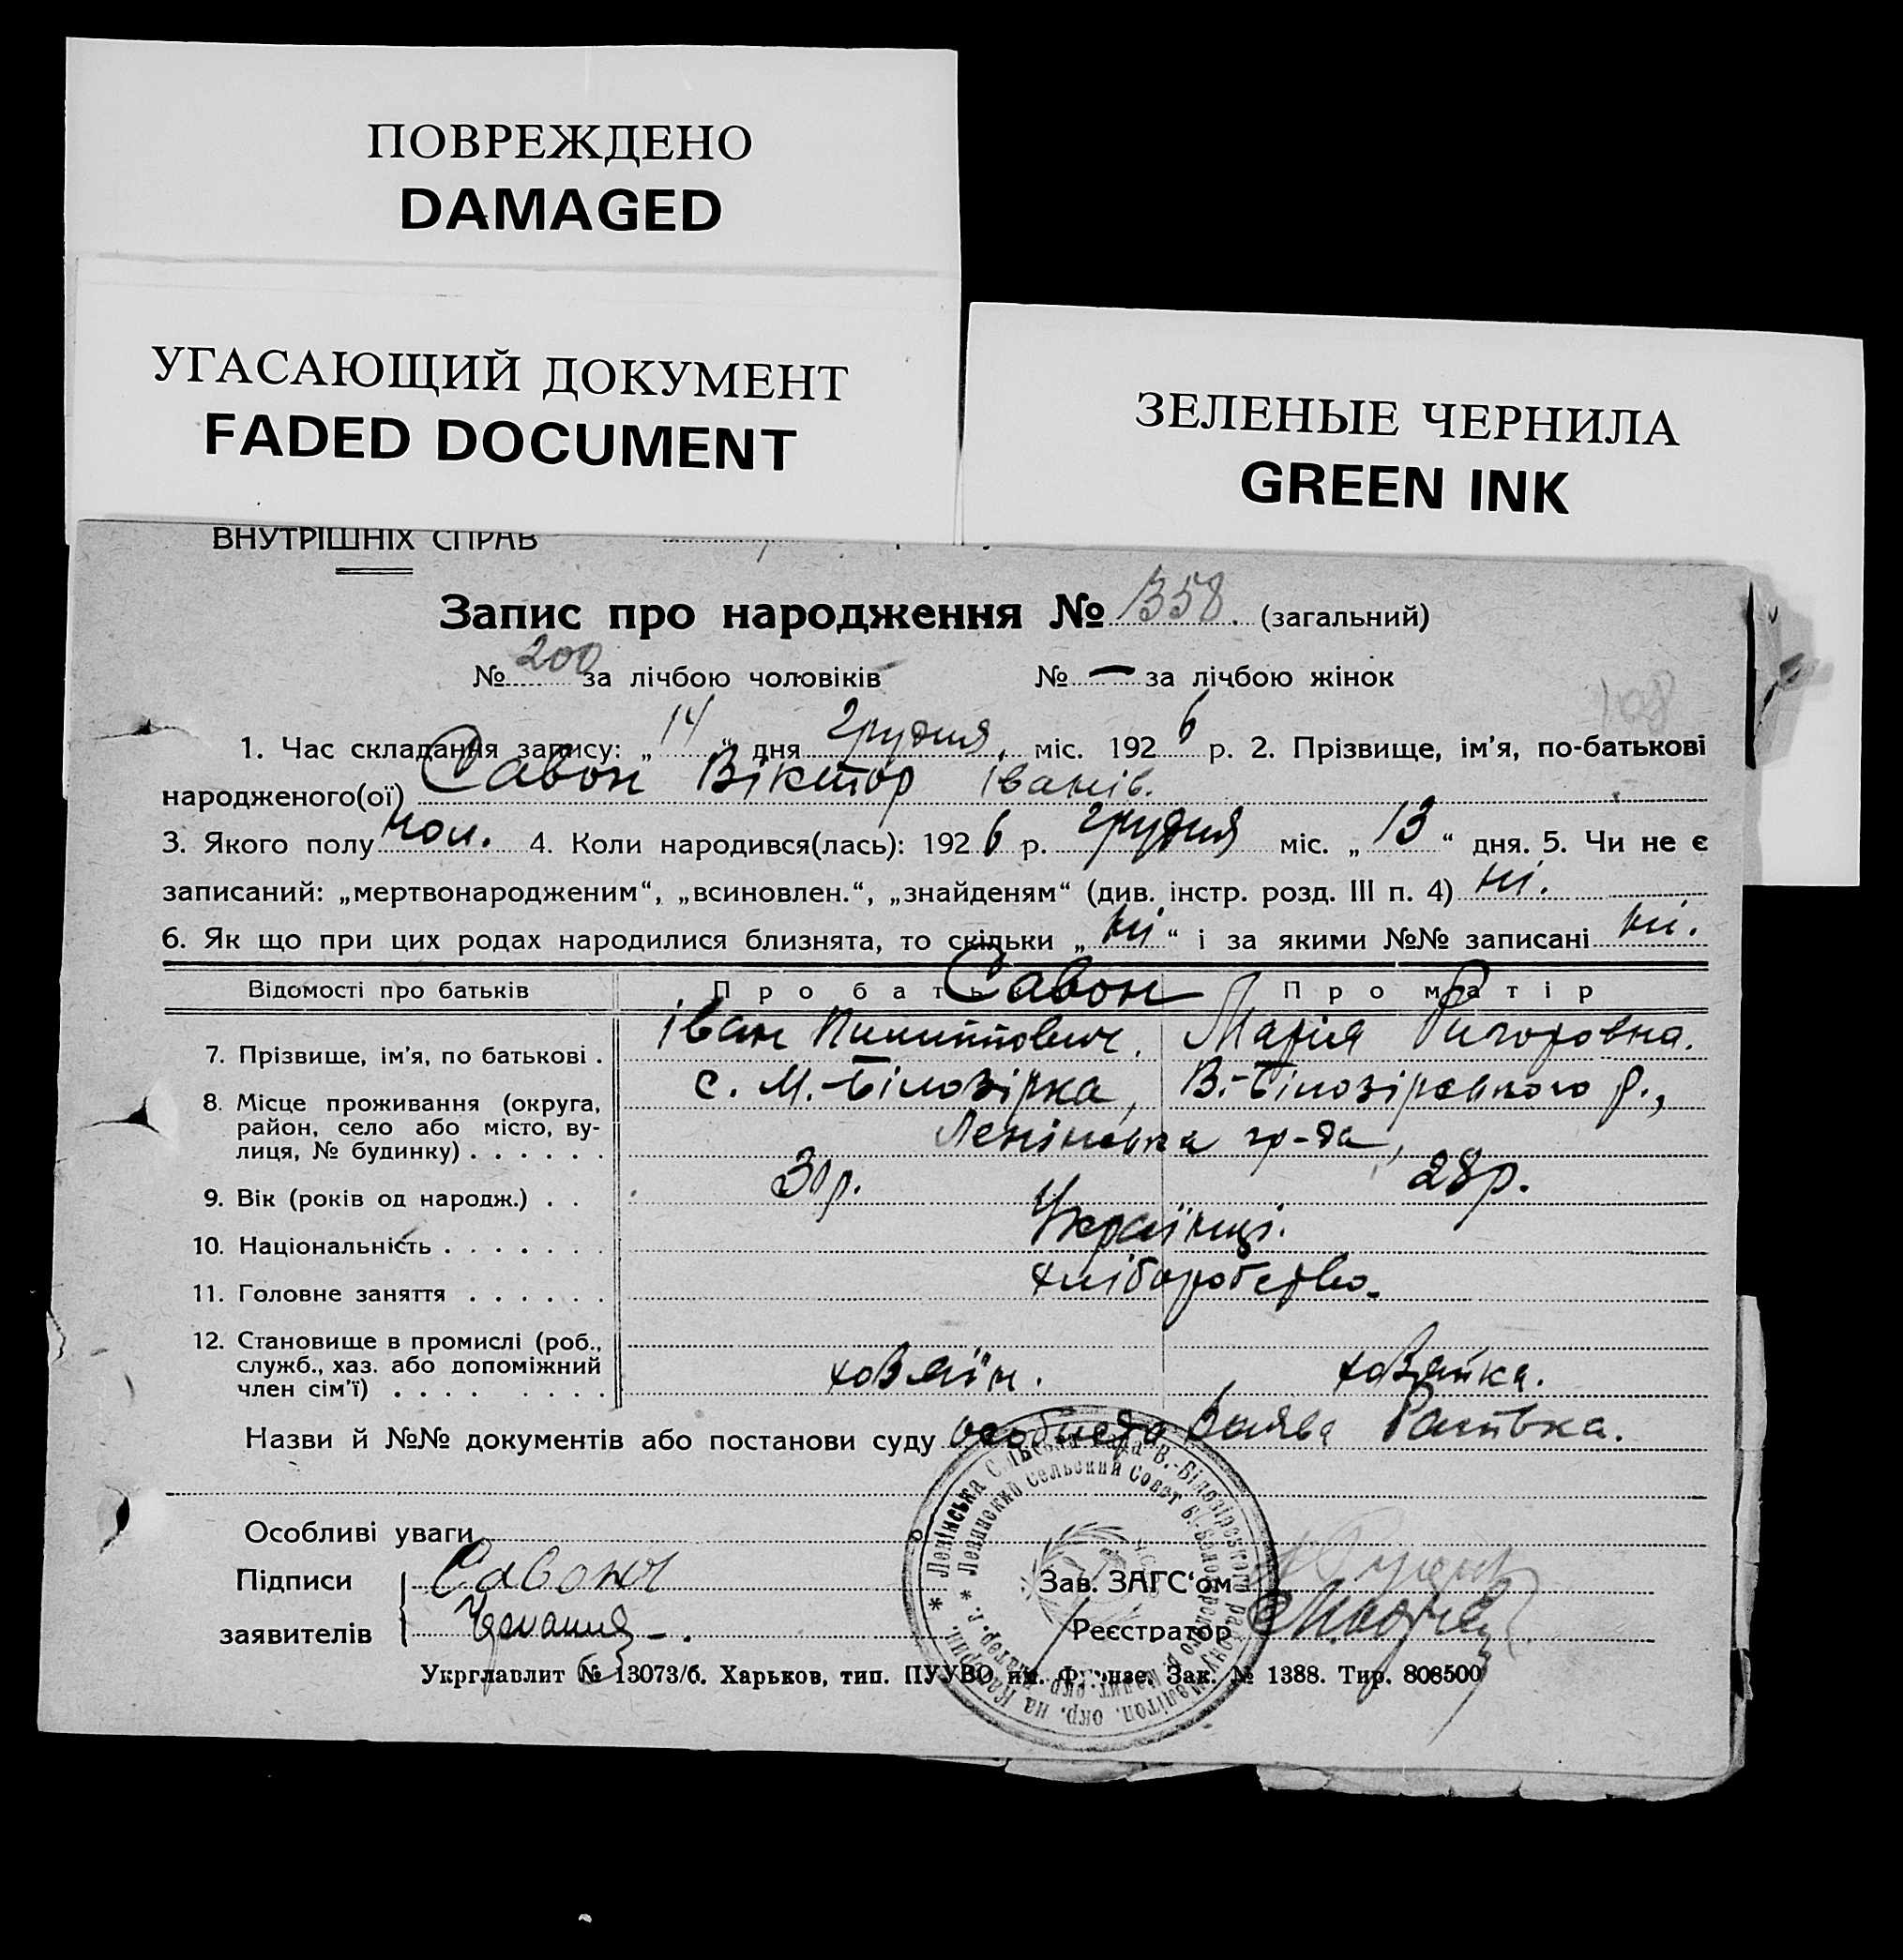 ПОВРЕЖДЕНО
DAMAGED
УГАСАЮЩИЙ ДОКУМЕНТ
FADED DOCUMENT
ЗЕЛЕНЫЕ ЧЕРНИЛА
GREEN INK
ВНУТРІШНІХ СПРАВ
Запис про народження № 358 (загальний)
№ 200 за лічбою чоловіків № — за лічбою жінок
108
1. Час складання запису: „14“ дня Грудня міс. 1926 р. 2. Прізвище, ім’я, по-батькові
народженого(ої) Савон Віктор Іванів.
3. Якого полу чол. 4. Коли народився(лась): 1926 р. Грудня міс. „13“ дня. 5. Чи не є
записаний: „мертвонародженим“, „всиновлен.“, „знайденям“ (див. інстр. розд. III п. 4) ні.
6. Як що при цих родах народилися близнята, то скільки „ні“ і за якими №№ записані ні.
Відомості про батьків Про батька Про матір
Савон
7. Прізвище, ім’я, по батькові . Іван Пилиппович. Марія Григоровна.
8. Місце проживання (округа, с. М.-Білозірка, В.-Білозірського р.,
район, село або місто, ву-
лиця, № будинку) . . . . . . Ленінська гр-да,
9. Вік (років од народж.) . . 30р. 28р.
10. Національність . . . . . . . Українці.
11. Головне заняття . . . . . . Хліборобство.
12. Становище в промислі (роб.,
служб., хаз. або допоміжний хозяїн. хозяйка.
член сім’ї) . . . . . . . .
Назви й №№ документів або постанови суду особиста заява
Особливі уваги
Підписи Савон
заявителів
Зав. ЗАГС‘ом
Реєстратор
* Ленінська Сільська Рада В.-Білозірського району Мелітоп. окр. на Катерин.
* Ленинский Сельский Совет Б.-Белозерского р. Мелит. окр. Екатер. г.
Укрглавлит № 13073/б. Харьков, тип. ПУУВО им. Фрунзе. Зак. № 1388. Тир. 808500